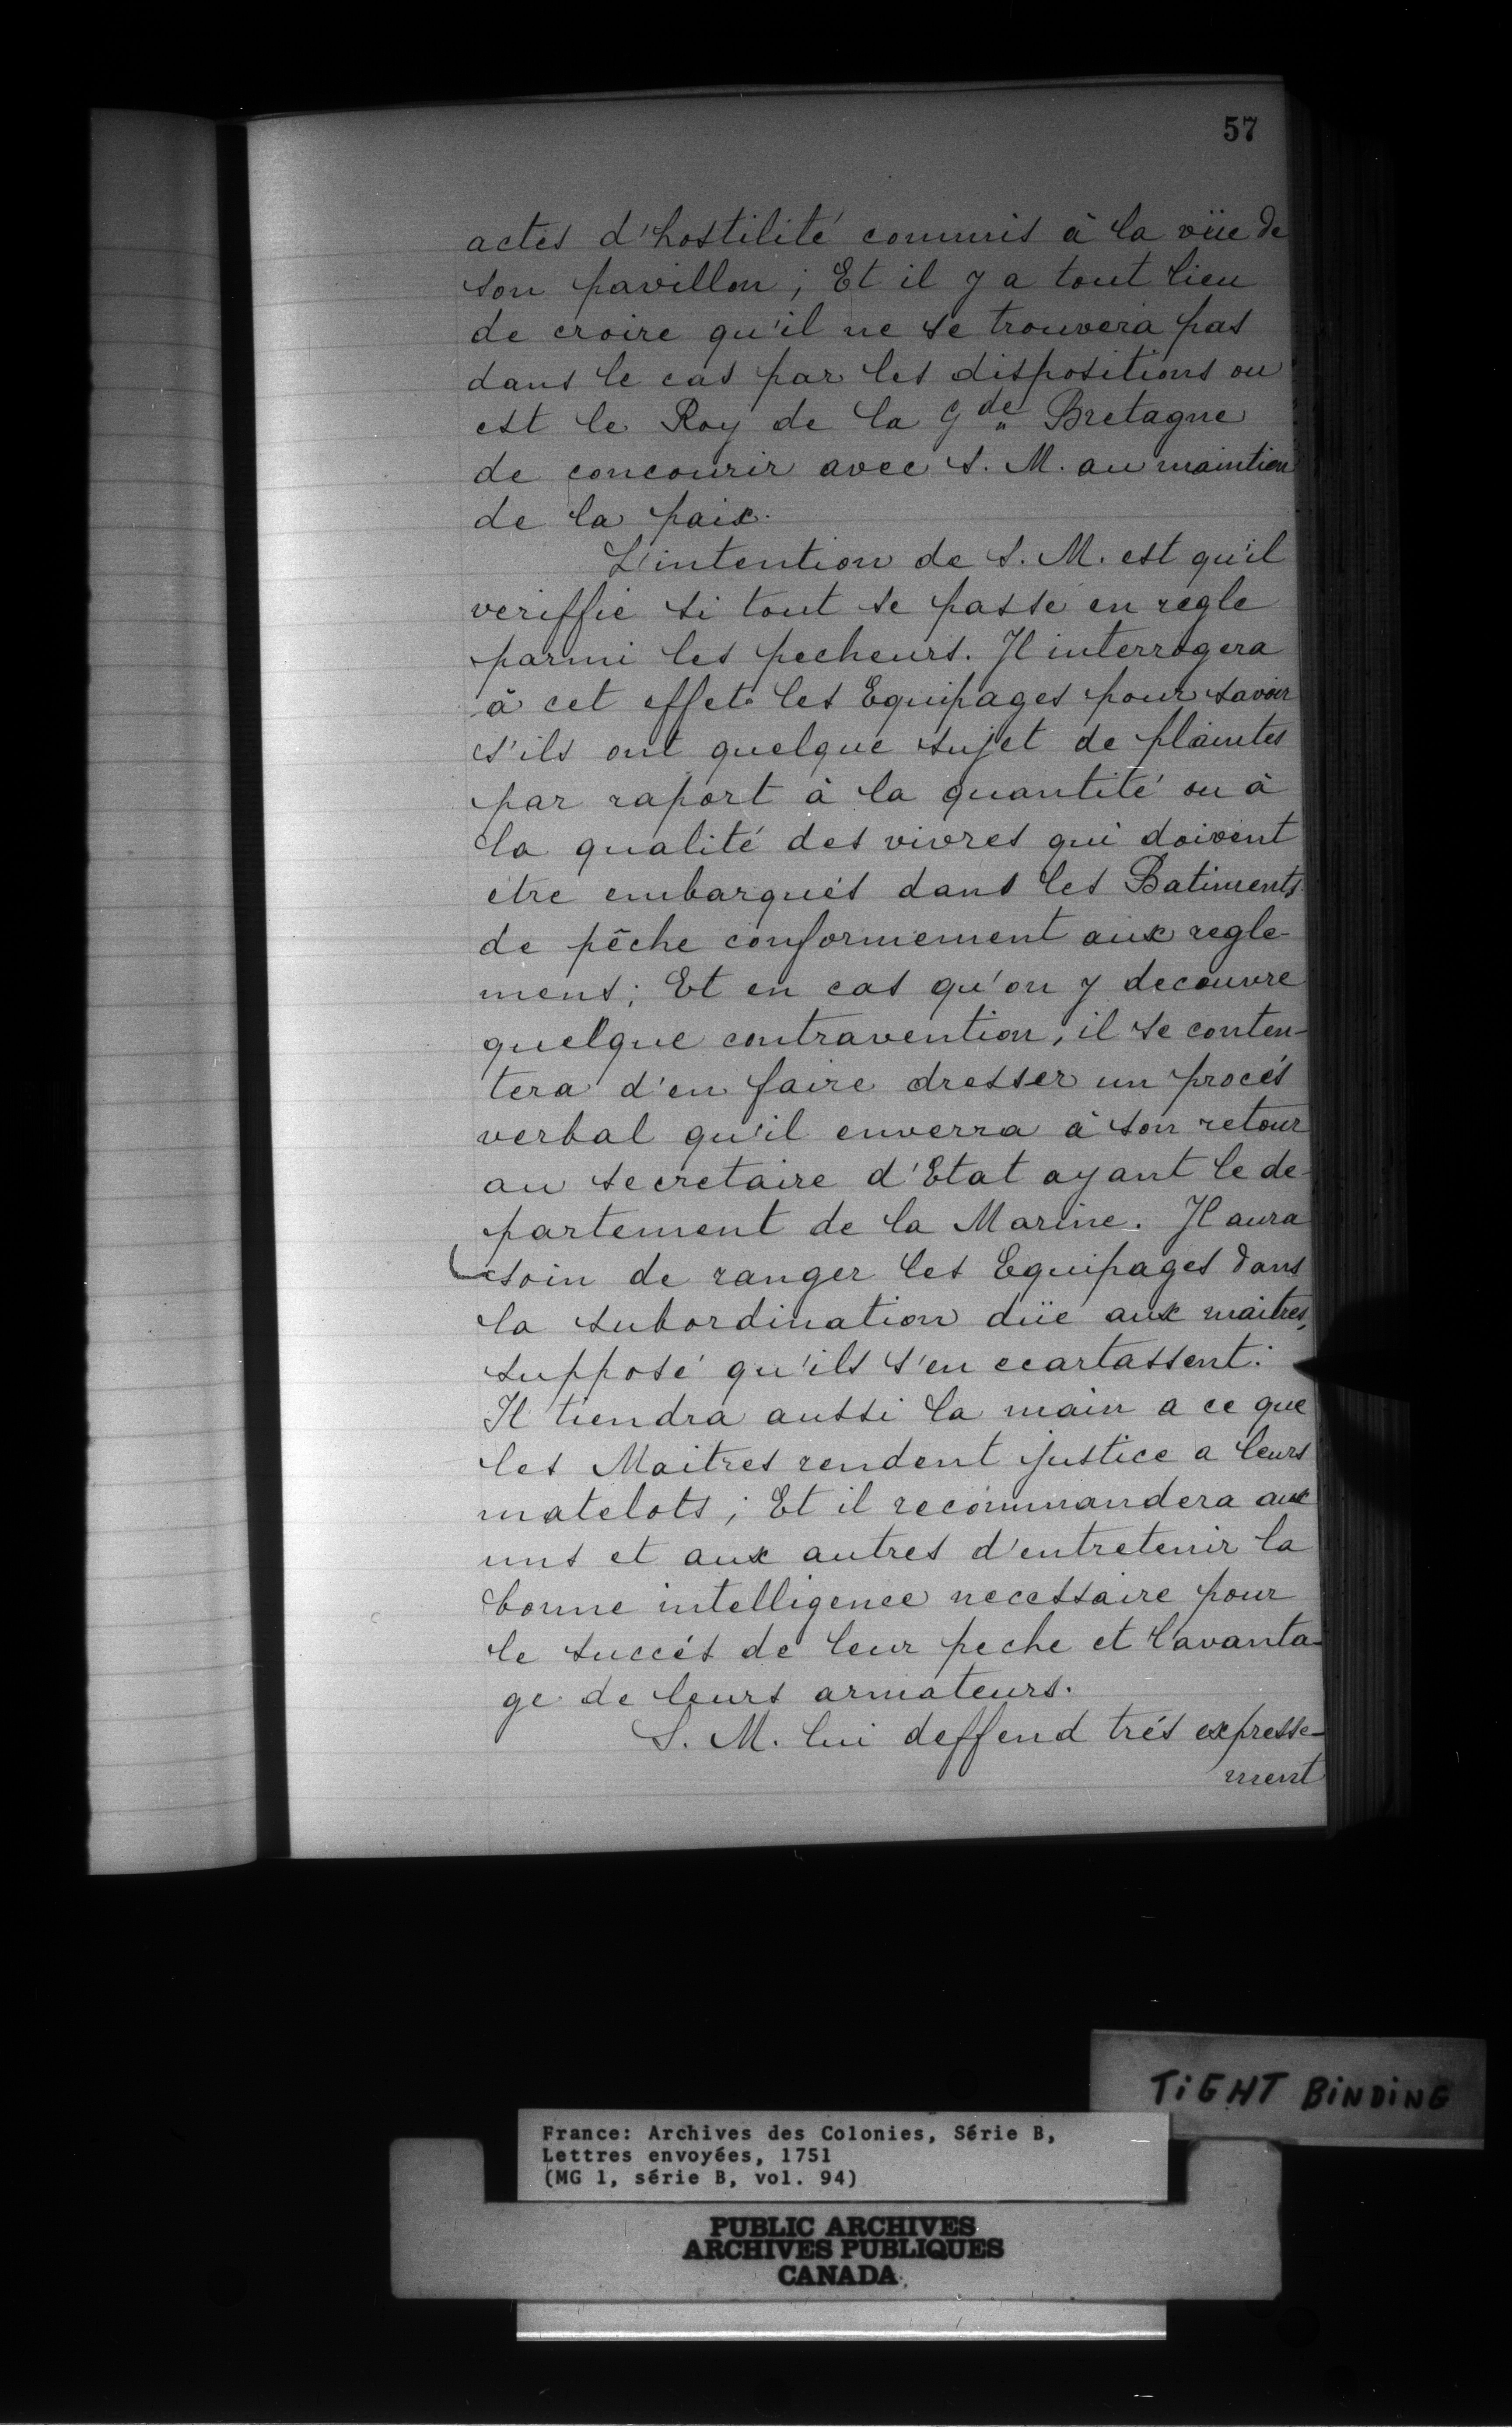 57
actes d'hostilité commis à la vüe de
son pavillon ; Et il y a tout lieu
de croire qu'il ne se trouvera pas
dans le cas par les dispositions ou
est le Roy de la Gde Bretagne
de concourir avec S. M. au maintien
de la paix.
L'intention de S. M. est qu'il
veriffie si tout se passe en regle
parmi les pecheurs. Il interrogera
à cet effet les Equipages pour savoir
s'ils ont quelque sujet de plaintes
par raport à la quantité ou à
la qualité des vivres qui doivent
être embarqués dans les Batiments
de pêche conformement aux regle-
mens ; Et en cas qu'on y decouvre
quelque contravention, il se conten-
tera d'en faire dresser un procés
verbal qu'il enverra à son retour
au secretaire d'Etat ayant le de-
partement de la Marine. Il aura
soin de ranger les Equipages dans
la subordination düe aux maitres,
supposé qu'ils s'en ecartassent.
Il tiendra aussi la main a ce que
les Maitres rendent justice a leurs
matelots ; Et il recommandera aux
uns et aux autres d'entretenir la
bonne intelligence necessaire pour
le succés de leur peche et l'avanta-
ge de leurs armateurs.
S. M. lui deffend trés expresse-
ment
TiGHT BiNDiNG
France: Archives des Colonies, Série B,
Lettres envoyées, 1751
(MG 1, série B, vol. 94)
PUBLIC ARCHIVES
ARCHIVES PUBLIQUES
CANADA